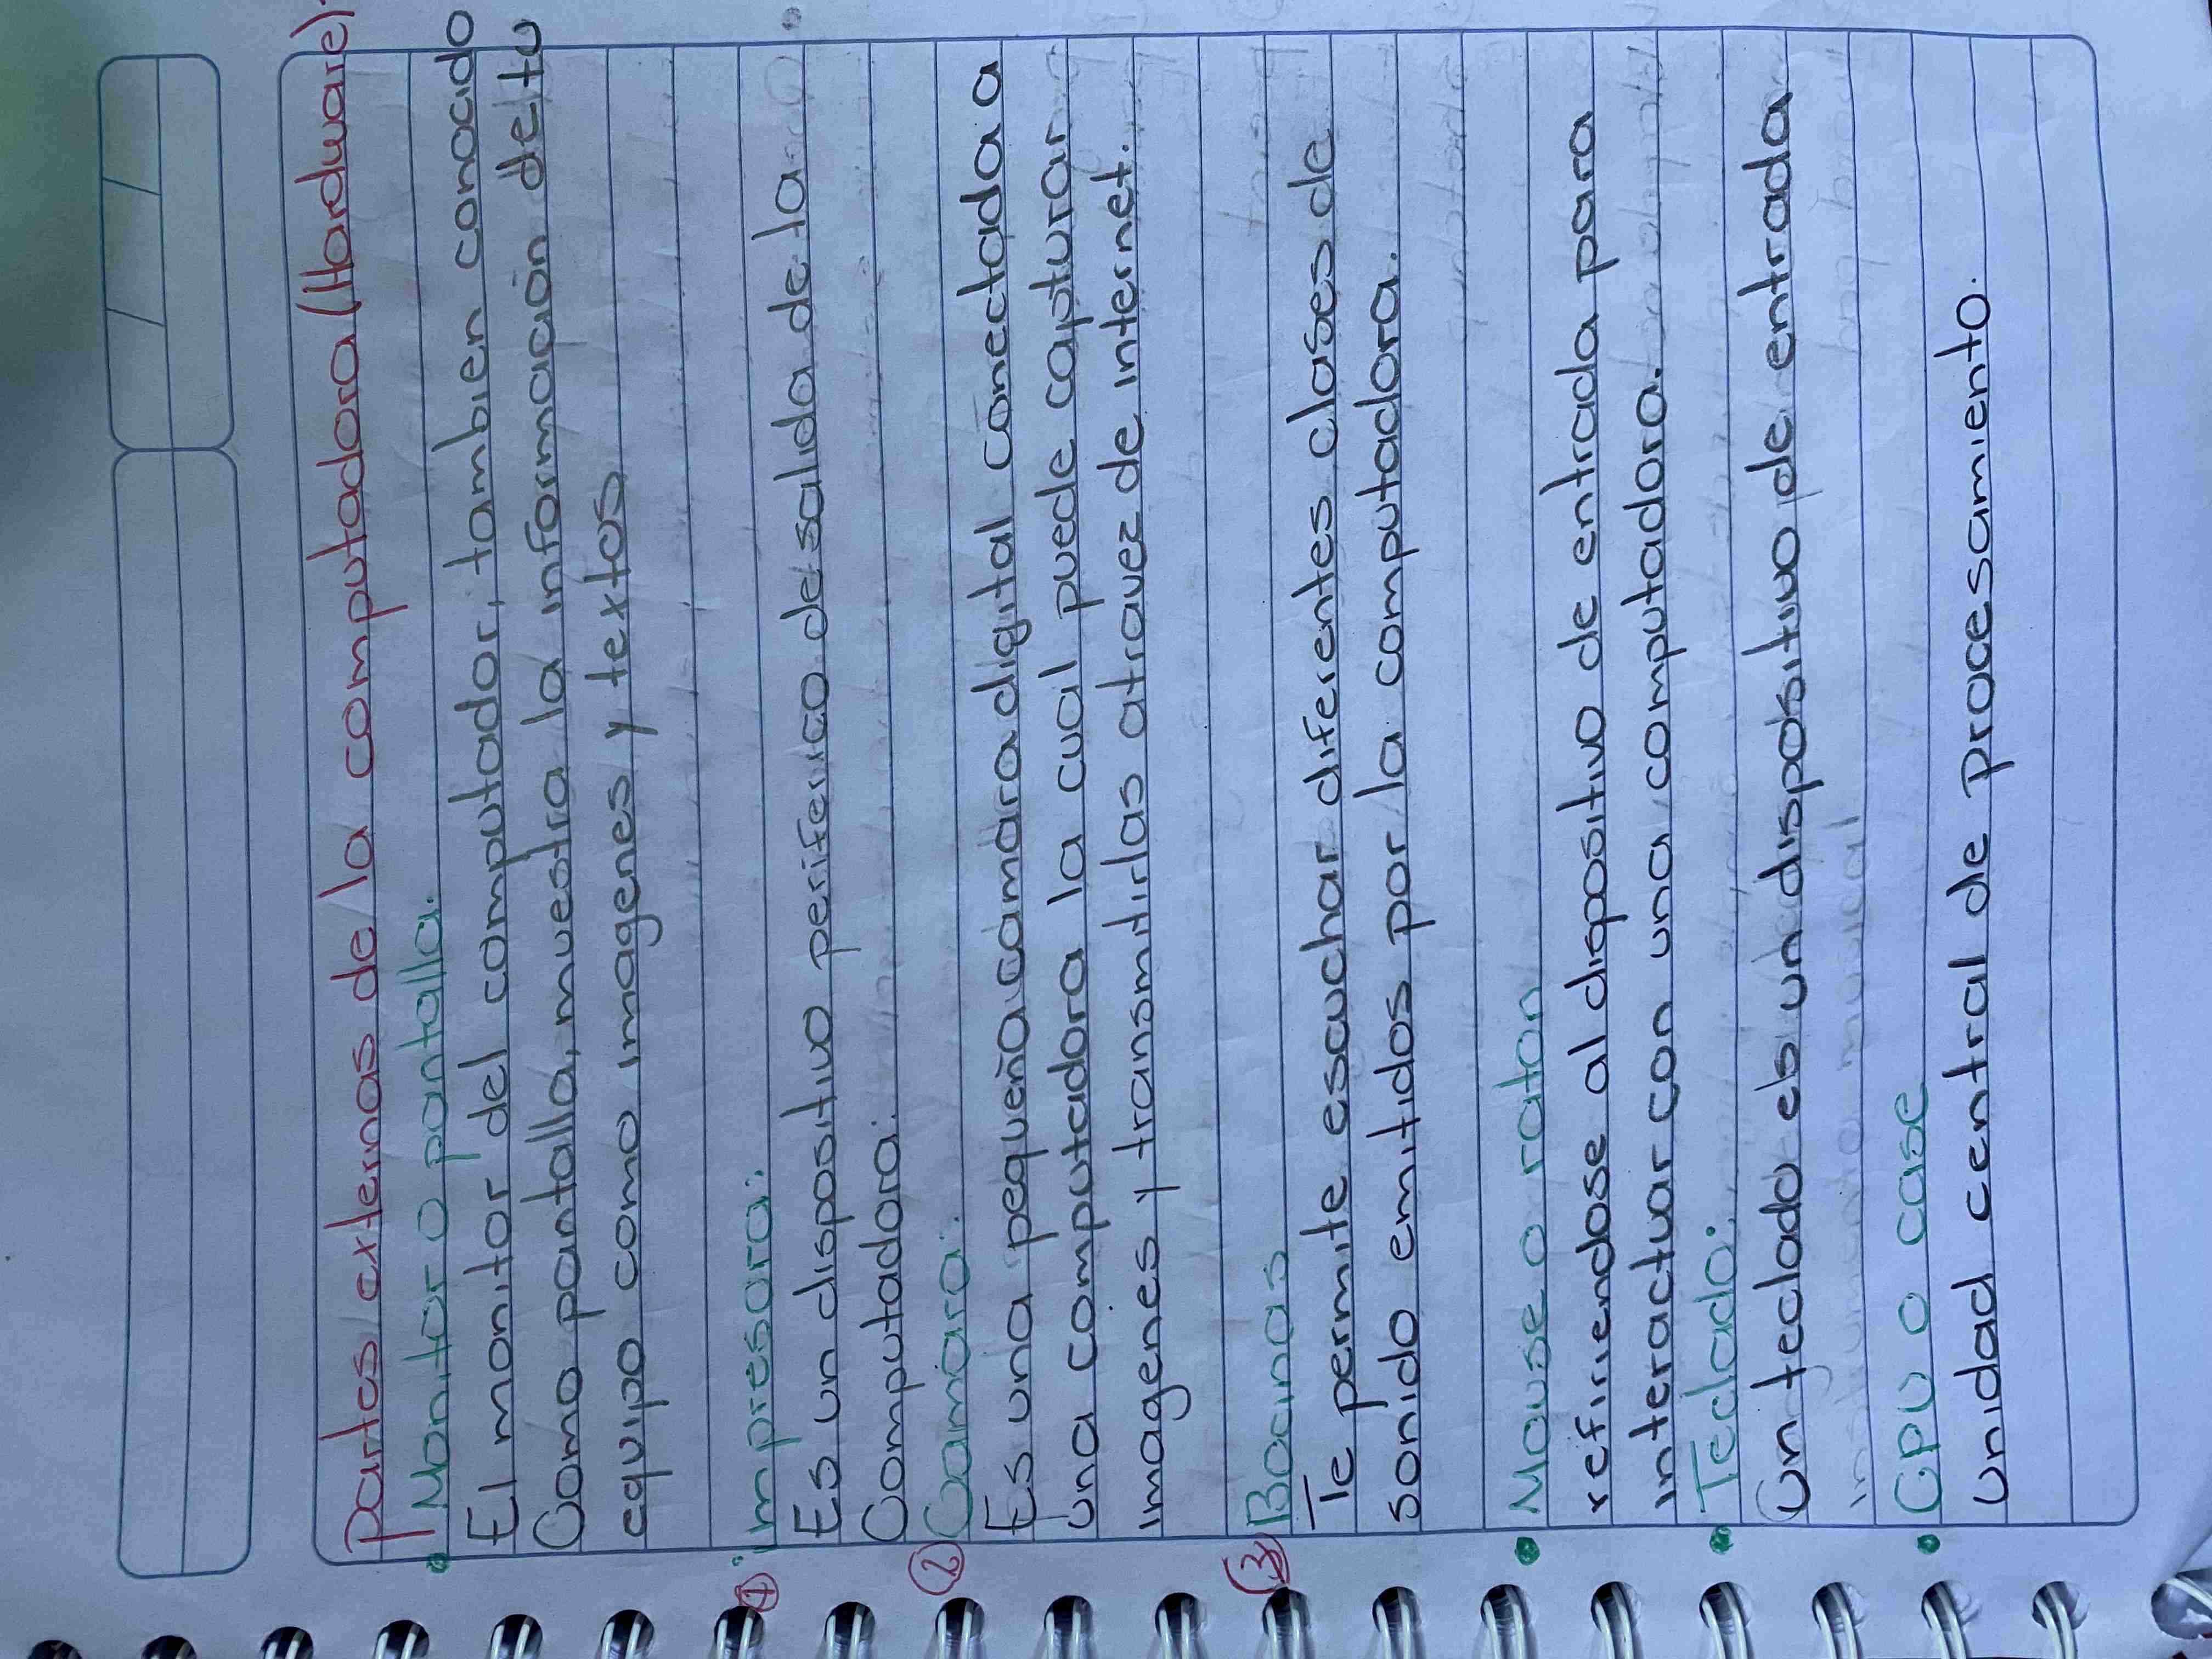 Partes externas de la computadora (Hardware)
• Monitor o pantalla.
El monitor del computador, tambien conocido
Como pantalla, muestra la información de tu
equipo como imagenes y textos
① impresora:
Es un dispositivo periferico de salida de la
Computadora.
② Camara:
Es una pequeña camara digital conectada a
una computadora la cual puede capturar
imagenes y transmitirlas atravez de internet.
③ Bocinas
Te permite escuchar diferentes clases de
sonido emitidos por la computadora.
• Mouse o raton
refiriendose al dispositivo de entrada para
interactuar con una computadora.
• Teclado:
Un teclado es un dispositivo de entrada
• CPU o case
unidad central de procesamiento.